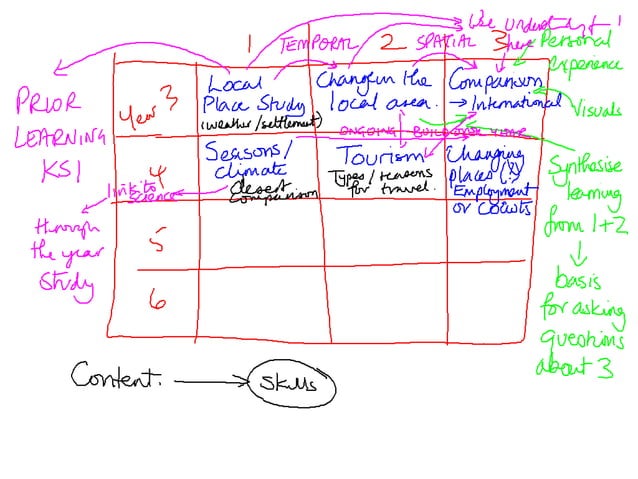 1 TEMPORAL 2 SPATIAL 3
Use understanding of 1
here
Personal
experience
Visuals
PRIOR
LEARNING
KS1
Year 3
Local
Place Study
(weather/settlement)
Change in the
local area.
Comparison
→ International
ONGOING BUILD OVER TIME
4
Seasons/
climate
desert
comparison
Tourism
Types/reasons
for travel.
Changing
places (?)
Employment
or Coasts
links to
science
through
the year
study
Synthesise
learning
from 1+2
basis
for asking
questions
about 3
5
6
Content. → Skills